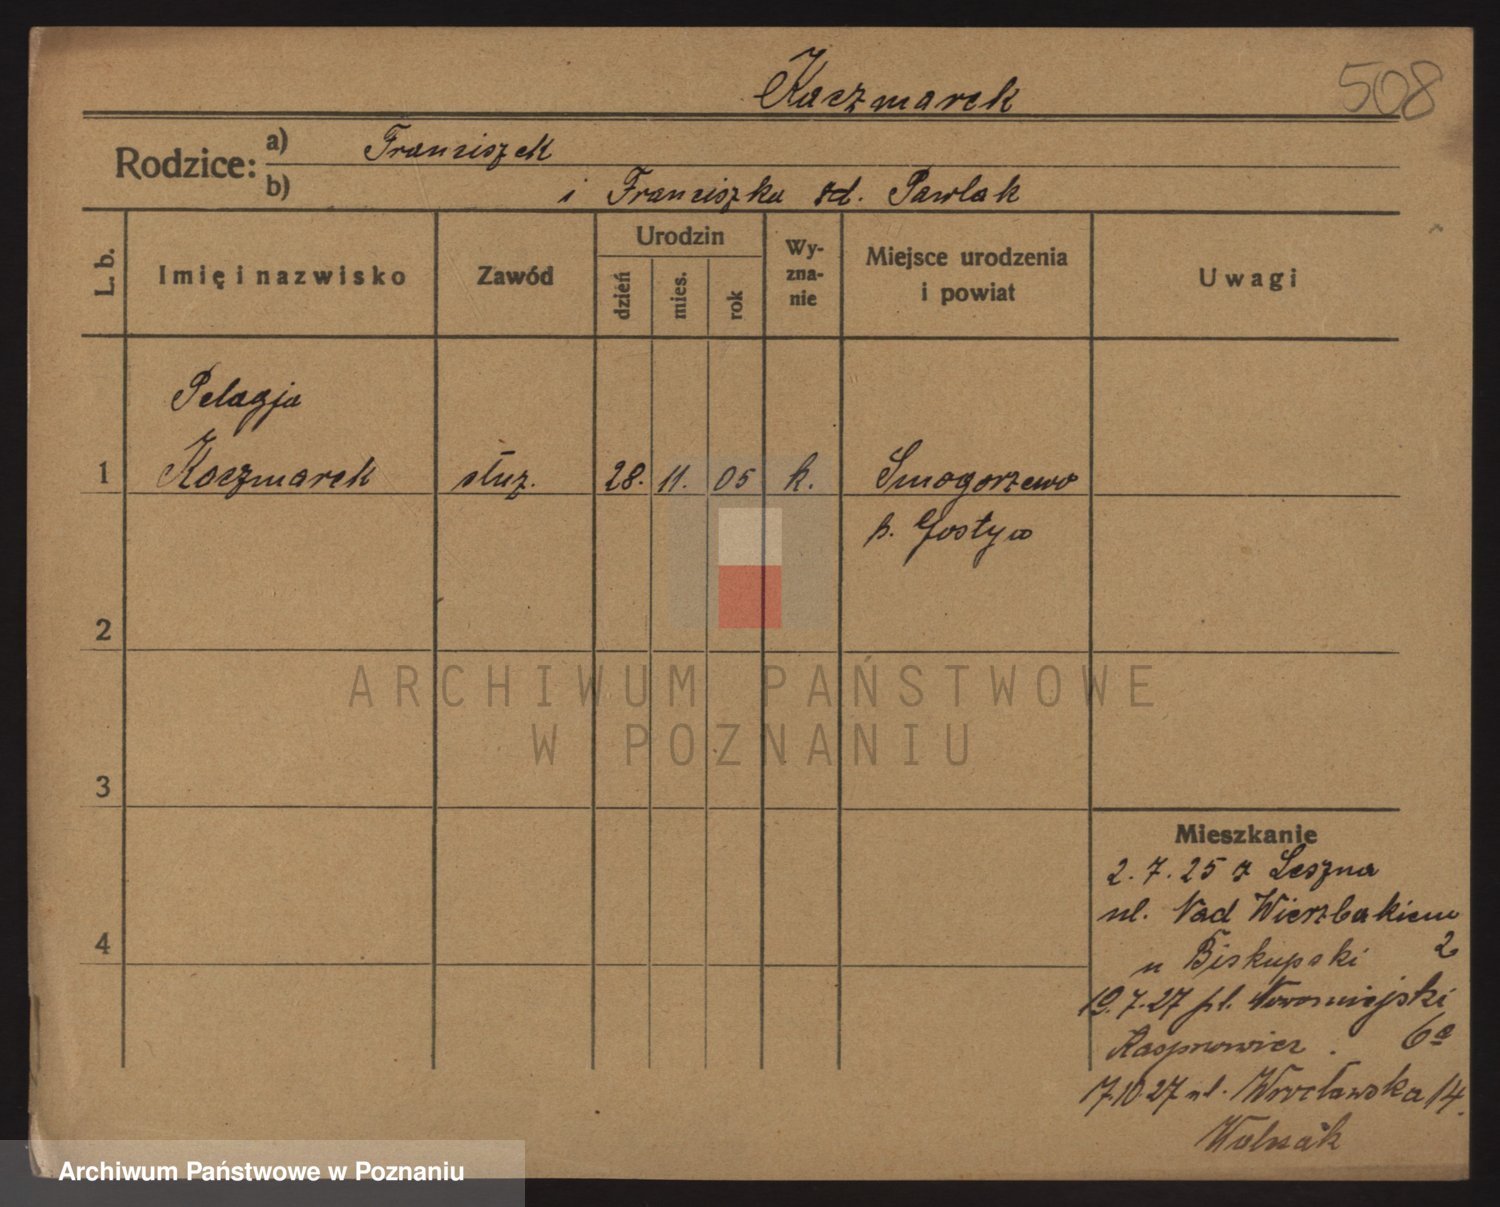 Kaczmarek
508
Rodzice:
a) Franciszek
b) i Franciszka zd. Pawlak
L. b.
Imię i nazwisko
Zawód
Urodzin
dzień
mies.
rok
Wy-
zna-
nie
Miejsce urodzenia
i powiat
Uwagi
Pelagja
1 Kaczmarek służ. 28. 11. 05 k. Smogorzewo
p. Gostyń
2
3
4
Mieszkanie
2.7.25 z Leszna
ul. Nad Wierzbakiem
u Biskupski 2
19.7.27 pl. Nowomiejski
6a
7.10.27 ul. Wrocławska 14.
Walczak
ARCHIWUM PAŃSTWOWE
W POZNANIU
Archiwum Państwowe w Poznaniu